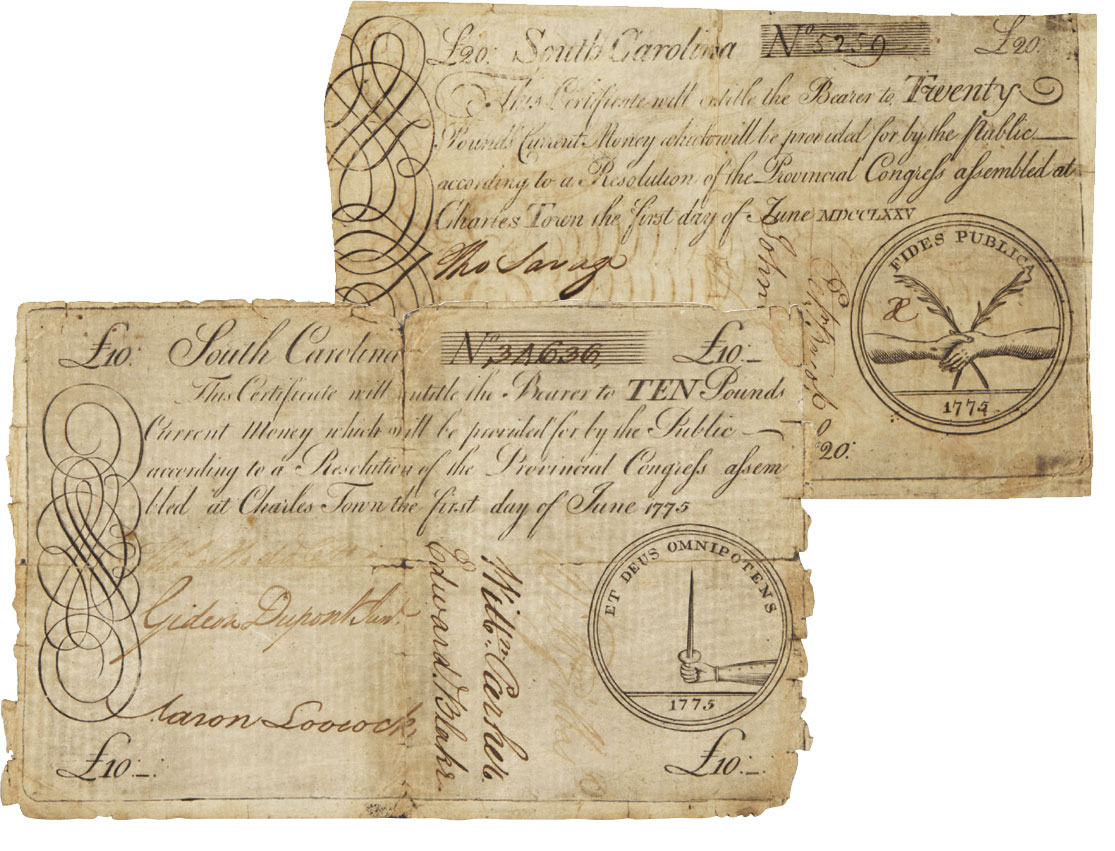 £20: South Carolina No 5259 £20:
This Certificate will entitle the Bearer to Twenty
Pounds Current Money which will be provided for by the Public
according to a Resolution of the Provincial Congress assembled at
Charles Town the first day of June MDCCLXXV
Tho Savage
John
FIDES PUBLICA
1775
20:
£10: South Carolina No 34636, £10:
This Certificate will entitle the Bearer to TEN Pounds
Current Money which will be provided for by the Public
according to a Resolution of the Provincial Congress assem
bled at Charles Town the first day of June 1775
Gideon Dupont Junr.
Aaron Loocock
Edward Blake
Willm
ET DEUS OMNIPOTENS
1775
£10: £10: